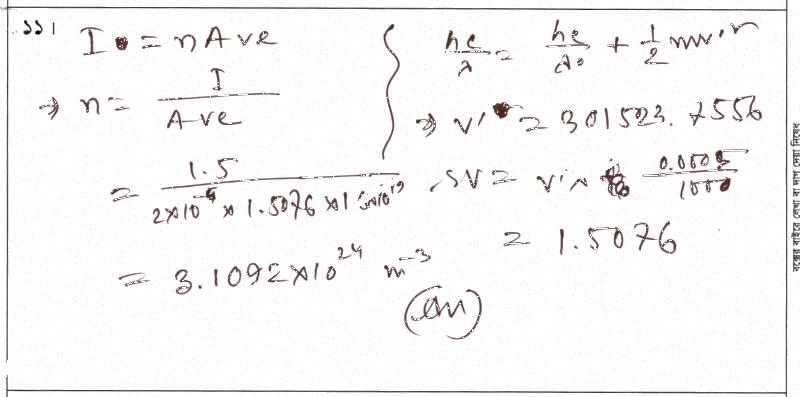 ১১।
I = nAve
⇒ n = I / Ave
= 1.5 / 2×10⁻⁶ × 1.5076 × 1.6×10⁻¹⁹
= 3.1092×10²⁴ m⁻³
(Ans)
hc/λ = hc/λ₀ + 1/2 mv'²
⇒ v' = 301523.7556
∴ v = v' × 0.0005 / 1000
= 1.5076
বক্সের বাইরে লেখা বা দাগ দেয়া নিষেধ